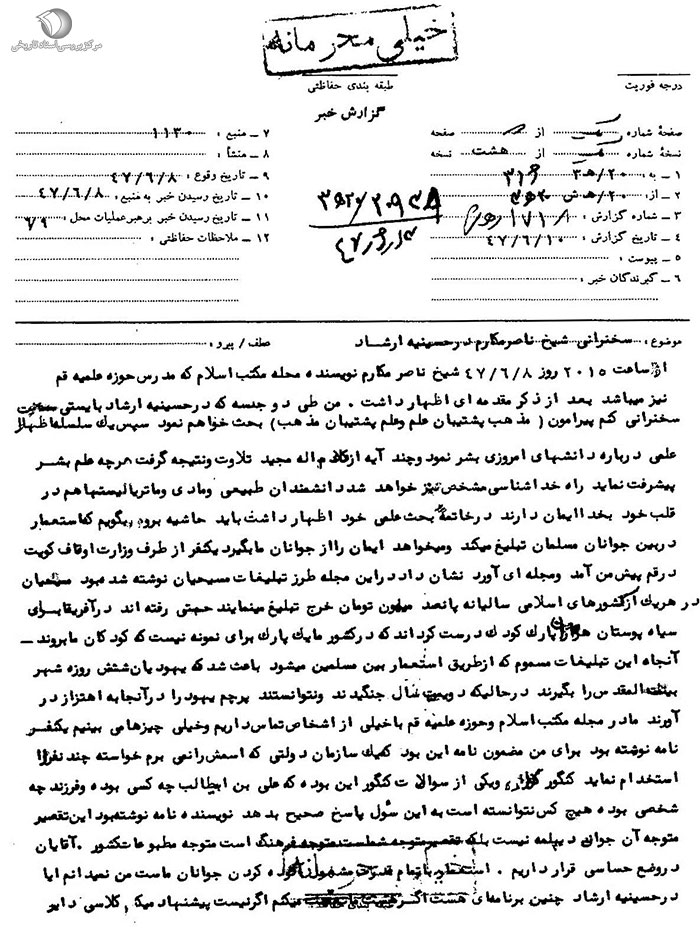 مرکز بررسی اسناد تاریخی
خیلی محرمانه
درجه فوریت
طبقه بندی حفاظتی
گزارش خبر
صفحهٔ شماره یک از صفحه
نسخهٔ شماره از هشت نسخه
۱ ـ به : ۲۰/ه۳ ۳۱۶
۲ ـ از : ۲۰/ه‍ش
۳ ـ شماره گزارش :
۴ ـ تاریخ گزارش : ۴۷/۶/۱۰
۵ ـ پیوست :
۶ ـ گیرندگان خبر :
۷ ـ منبع : ۱۱۳۰
۸ ـ منشأ :
۹ ـ تاریخ وقوع : ۴۷/۶/۸
۱۰ ـ تاریخ رسیدن خبر به منبع : ۴۷/۶/۸
۱۱ ـ تاریخ رسیدن خبر برهبر عملیات محل : ۶/۹
۱۲ ـ ملاحظات حفاظتی :
موضوع : سخنرانی شیخ ناصر مکارم در حسینیه ارشاد
عطف / پیرو :
از ساعت ۲۰۱۵ روز ۴۷/۶/۸ شیخ ناصر مکارم نویسنده مجله مکتب اسلام که مدرس حوزه علمیه قم
نیز میباشد بعد از ذکر مقدمه ای اظهار داشت . من طی دو جلسه که در حسینیه ارشاد بایستی
سخنرانی کنم پیرامون ( مذهب پشتیبان علم وعلم پشتیبان مذهب ) بحث خواهم نمود سپس یك سلسله
علمی درباره دانشهای امروزی بشر نمود وچند آیه از کلام اله مجید تلاوت ونتیجه گرفت هرچه علم بشر
پیشرفت نماید راه خداشناسی مشخص تیز خواهد شد دانشمندان طبیعی ومادی وماتریالیستها هم در
قلب خود بخدا ایمان دارند درخاتمه بحث علمی خود اظهار داشت باید حاشیه بروم بگویم که استعمار
دربین جوانان مسلمان تبلیغ میکند ومیخواهد ایمان را از جوانان ما بگیرد یکنفر از طرف وزارت اوقاف کویت
درقم پیش من آمد ومجله ای آورد نشان داد در این مجله طرز تبلیغات مسیحیان نوشته شده بود مسیحیان
در هریك از کشورهای اسلامی سالیانه پانصد میلیون تومان خرج تبلیغ مینمایند حتی رفته اند در آفریقا برای
سیاه پوستان هزاران پارك کودك درست کرده اند که درکشور ما یك پارك برای نمونه نیست که کودکان ما بروند ـ
آنجا این تبلیغات مسموم که از طریق استعمار بین مسلمین میشود باعث شد که یهودیان شش روزه شهر
بیت المقدس را بگیرند درحالیکه دویست سال جنگیدند ونتوانستند پرچم یهود را در آنجا به اهتزاز در
آورند مادر مجله مکتب اسلام وحوزه علمیه قم باخیلی از اشخاص تماس داریم وخیلی چیزها می بینیم یکنفر
نامه نوشته بود برای من مضمون نامه این بود که یك سازمان دولتی که اسمش رانمی برم خواسته چند نفر را
استخدام نماید کنکور ویکی از سوالات کنکور این بوده که علی بن ابیطالب چه کسی بوده وفرزند چه
شخصی بوده هیچ کس نتوانسته است به این سئول پاسخ صحیح بدهد نویسنده نامه نوشته بود این تقصیر
متوجه آن جوان دیپلمه نیست بلکه فرهنگ است متوجه مطبوعات کشور . آقایان
دروضع حساسی قرار داریم . استعمار باتمام کردن جوانان ماست من نمیدانم ایا
درحسینیه ارشاد چنین برنامه‌ای هست اگر نیست پیشنهاد میکنم کلاسی